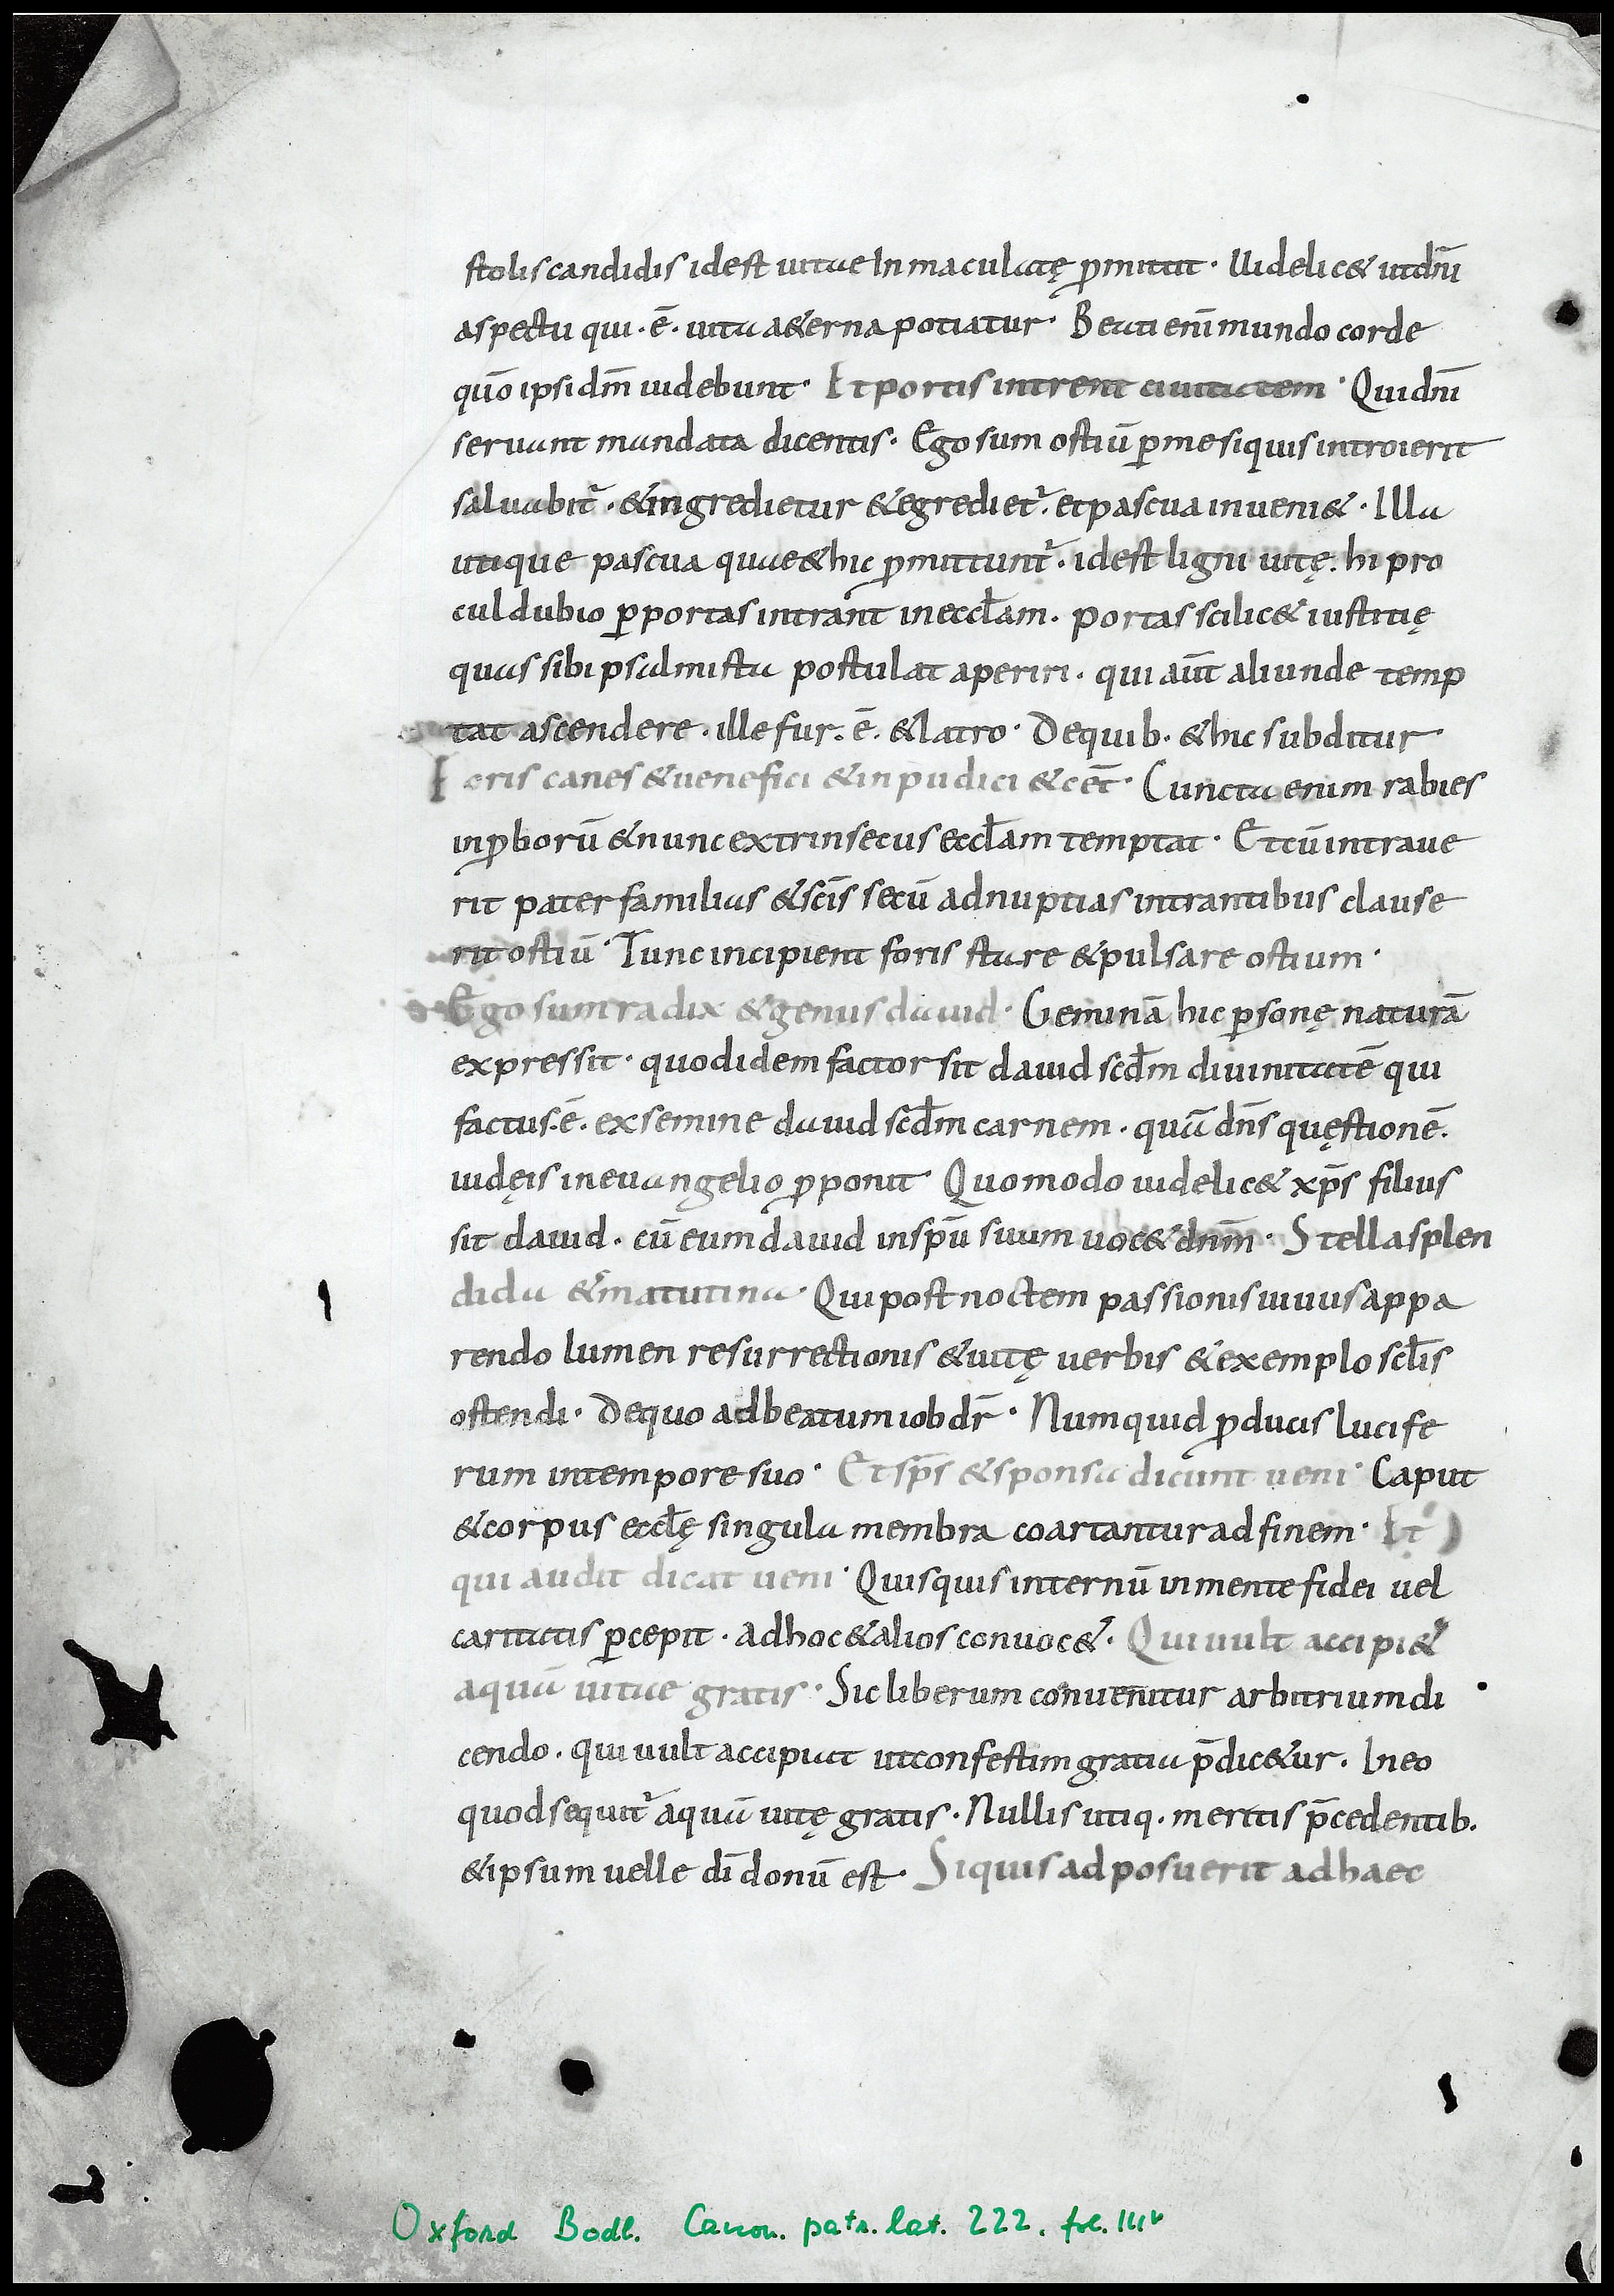 stolis candidis idest uitae Inmaculatę ꝓmittit · Uidelic& utdn̄i
aspectu qui · ē · uita a&erna potiatur · Beati eni̅ mundo corde
qūo ipsi dm̄ uidebunt · Et portis intrent ciuitatem · Qui dn̄i
seruant mandata dicentis · Ego sum ostiū ꝑ me siquis introierit
saluabit᷑ · & ingredietur & egrediet᷑ · et pascua inueni& · Illa
utique pascua quae & hic ꝓmittunt᷑ · idest ligni uitę · hi pro
cul dubio ꝑ portas intrant in eccƚam · portas scilic& iustitię
quas sibi psalmista postulat aperiri · qui aūt aliunde temp
tat ascendere · ille fur · ē · & latro · De quib · & hic subditur
Foris canes & uenefici & inpudici & cēt · Cuncta enim rabies
inꝓborū & nunc extrinsecus eccƚam temptat · Et cū intraue
rit pater familias & sc̄is secū ad nuptias intrantibus clause
rit ostiū · Tunc incipient foris stare & pulsare ostium ·
Ego sum radix & genus dauid · Geminā hic ꝑsonę naturā
expressit · quod idem factor sit dauid scd̄m diuinitatē qui
factus · ē · ex semine dauid scd̄m carnem · quā dn̄s quęstionē ·
iudęis in euangelio ꝓponit · Quomodo uidelic& xp̄s filius
sit dauid · cū eum dauid in sp̄u suum uoc& dnm̄ · Stella splen
dida & matutina · Qui post noctem passionis uiuus appa
rendo lumen resurrectionis & uitę uerbis & exemplo scƚis
ostendi · De quo ad beatum iob dr̄ · Numquid ꝓducis lucife
rum in tempore suo · Et sp̄s & sponsa dicunt ueni · Caput
& corpus eccƚę singula membra coartantur ad finem · Et
qui audit dicat ueni · Quisquis internū in mente fidei uel
caritatis ꝑcepit · ad hoc & alios conuoc& · Qui uult accipi&
aquā uitae gratis · Sic liberum conuenitur arbitrium di
cendo · qui uult accipiat ut confestim gratia p̄dic&ur · In eo
quod sequit᷑ aquā uitę gratis · Nullis utiq · meritis p̄cedentib ·
& ipsum uelle dī donū est · Siquis adposuerit ad haec
Oxford Bodl. Canon. patr. lat. 222. fol. IIIv